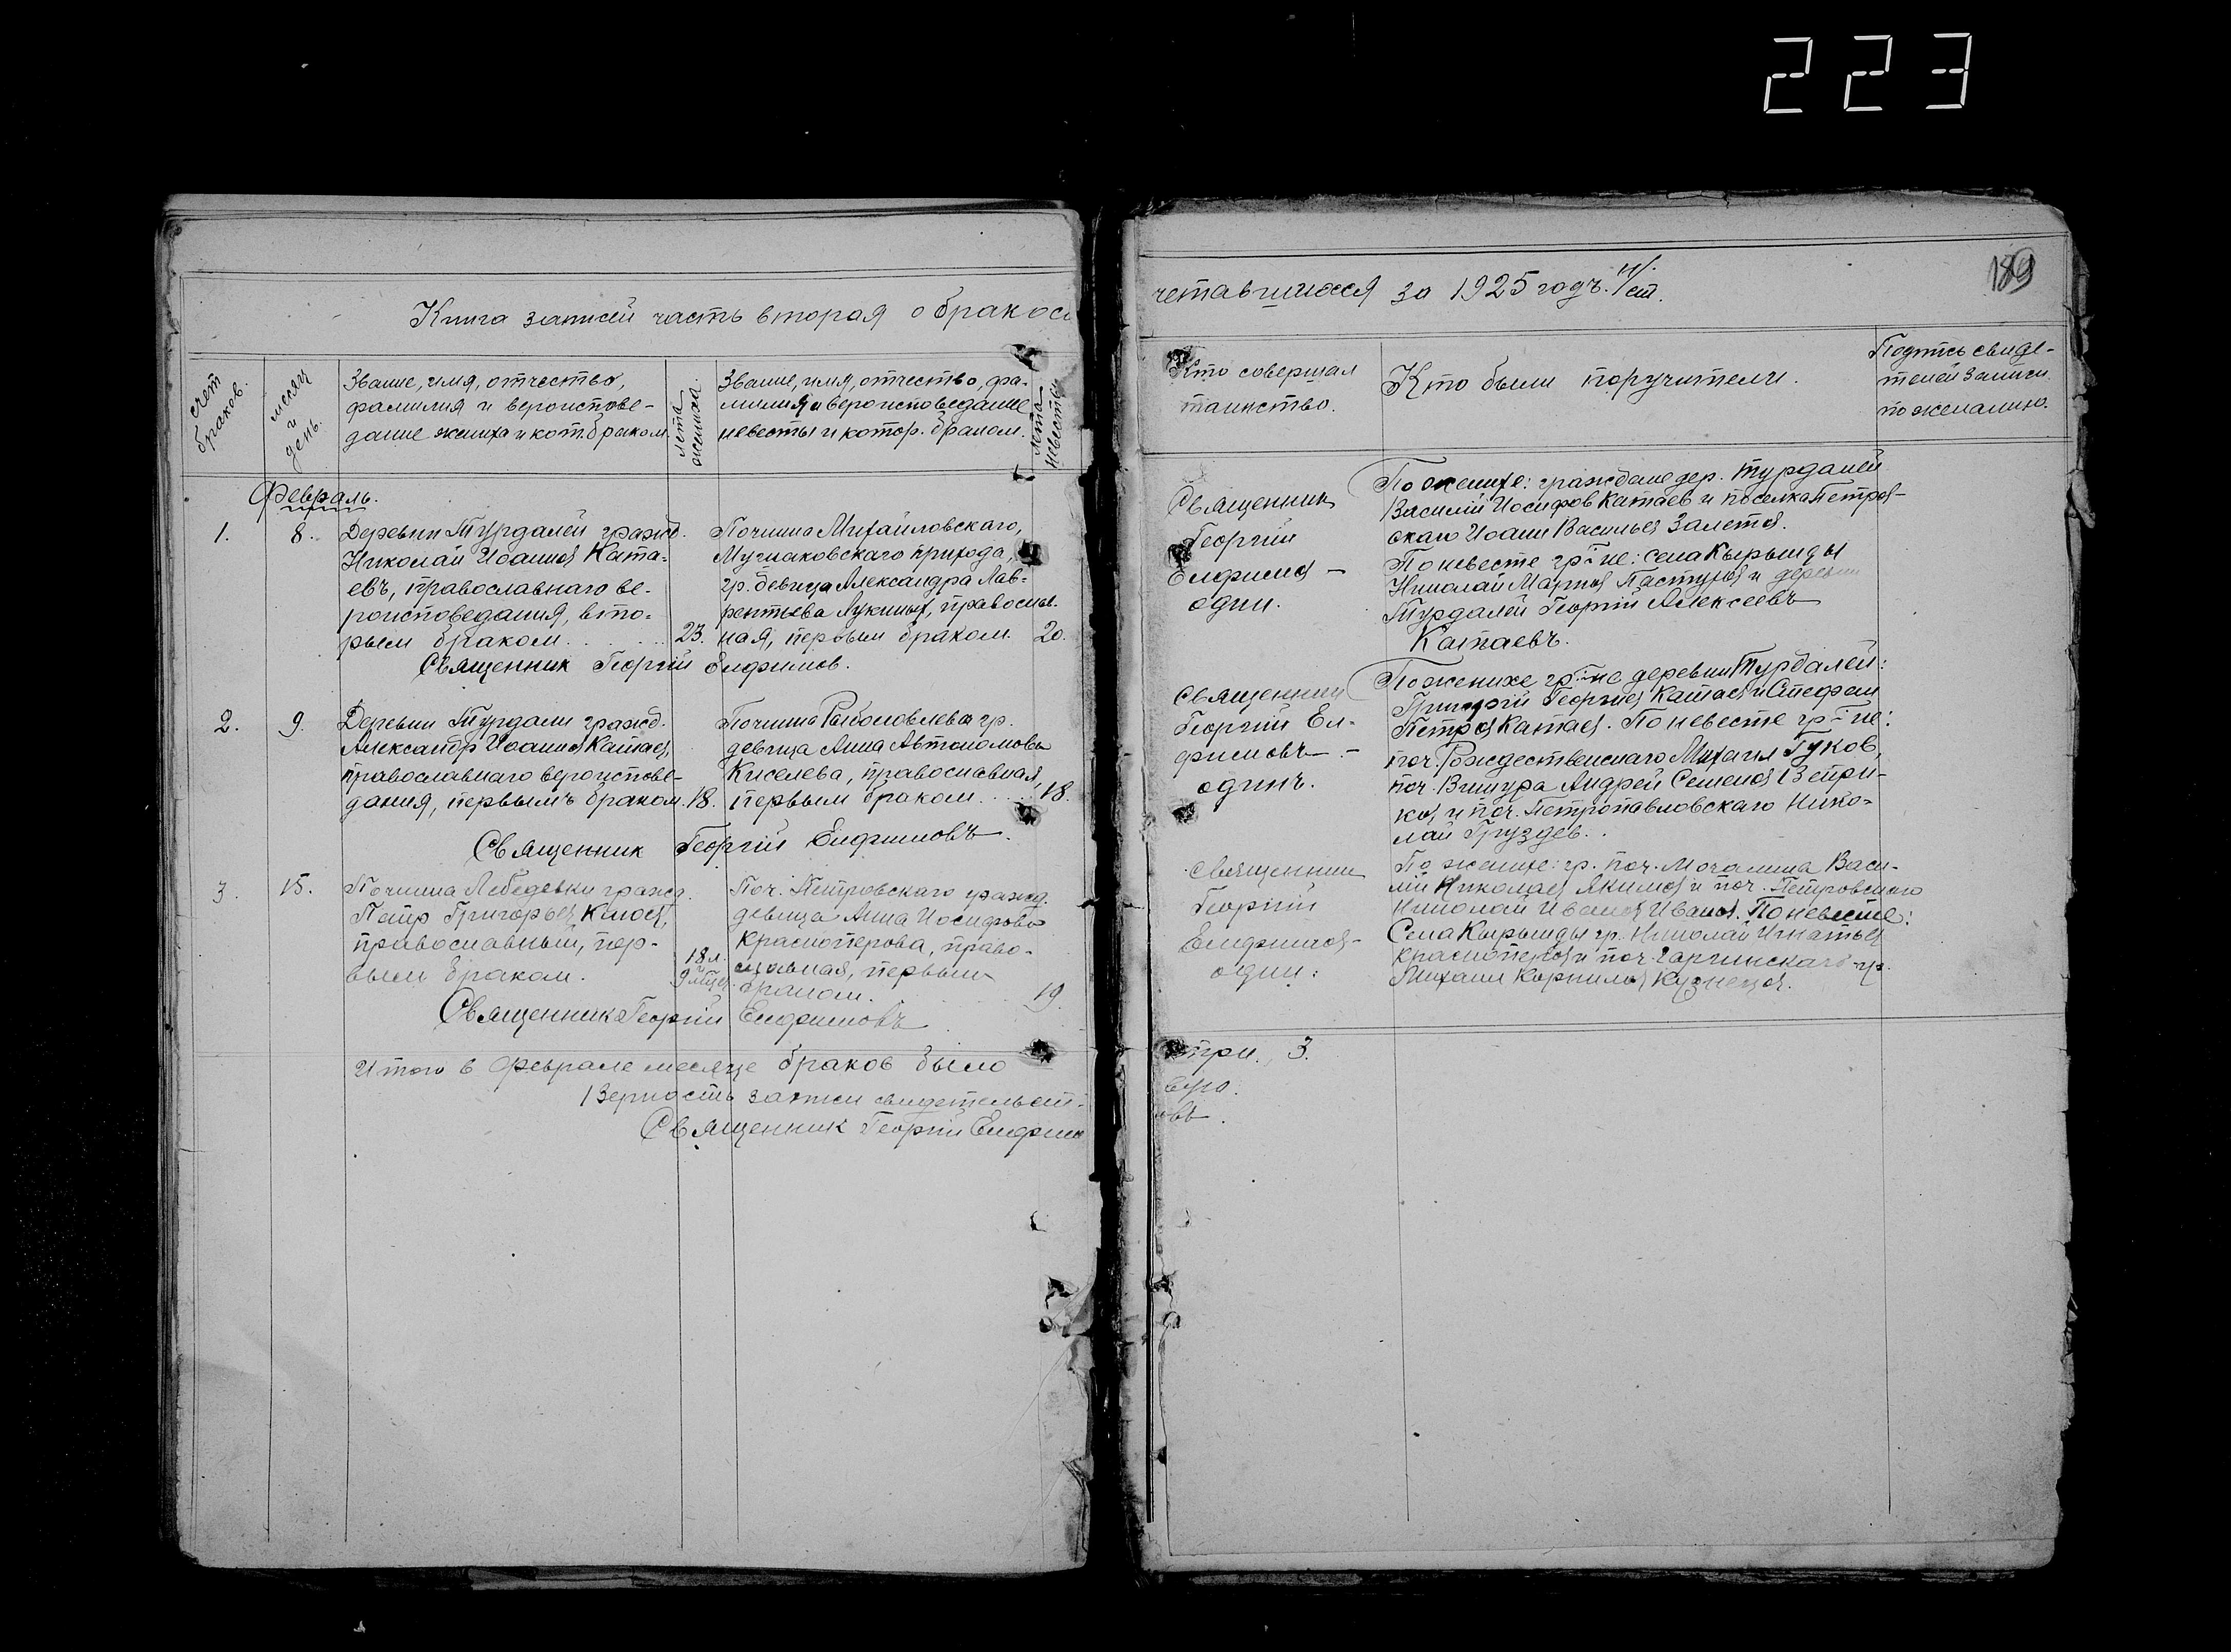 223
189
Книга записей часть вторая о бракосо
четавшихся за 1925 годъ. н/ст.
счет браков.
месяц и день.
Звание, имя, отчество,
фамилия и вероиспове-
дание жениха и кот. браком.
лета жениха.
Звание, имя, отчество, фа-
милия и вероисповедание
невесты и котор. браком.
лета невесты
Кто совершал
таинство.
Кто были поручители.
Подпись свиде-
телей записи
по желанию.
Февраль.
1.
8.
Деревни Турдалей гражд.
Николай Иоаннов Ката-
евъ, православнаго ве-
роисповедания, вто-
рым браком.
23.
Починка Михайловскаго,
Мучкаковскаго прихода,
гр. девица Александра Лав-
рентьева Лукиных, православ-
ная, первым браком.
20.
Священник Георгий Елфимов.
Священник
Георгий
Елфимов -
один.
По женихе: граждане дер. Турдалей
Василий Иосифов Катаев и поселка Петров-
скаго Иоанн Васильев Залетов.
По невесте гр-не: села Кырынды
Николай Марков Пастухов и деревни
Турдалей Георгий Алексеевъ
Катаевъ.
2.
9.
Деревни Турдали гражд.
Александр Иоаннов Катаев,
православнаго вероиспове-
дания, первымъ браком.
18.
Починка Рыболовлева гр.
девица Анна Автономова
Киселева, православная,
первым браком
18.
Священник Георгий Елфимовъ.
Священник
Георгий Ел-
фимовъ -
одинъ.
По женихе гр-не деревни Турдалей:
Григорий Георгиев Катаев и Стефан
Петров Катаев. По невесте гр-не:
поч. Рождественскаго Михаил Гуков,
поч. Вишура Андрей Семенов Ветри-
ков и поч. Петропавловскаго Нико-
лай Груздев.
3.
15.
Починка Лебедевки гражд.
Петр Григорьев Клюев,
православный, пер-
вым браком.
18 л.
9 мец.
Поч. Петровскаго гражд.
девица Анна Иосифова
Красноперова, право-
славная, первым
браком.
19.
Священник Георгий Елфимовъ
Священник
Георгий
Елфимов -
один.
По женихе: гр. поч. Мочалина Васи-
лий Николаев Акимов и поч. Петровского
Николай Иванов Иванов. По невесте:
Села Кырынды гр. Николай Игнатьев
Красноперов и поч. Гаринскаго гр.
Михаил Корнилов Кузнецов.
Итого в Феврале месяце браков было
три. 3.
Верность записи свидетельст-
вую.
Священник Георгий Елфимо
овъ.